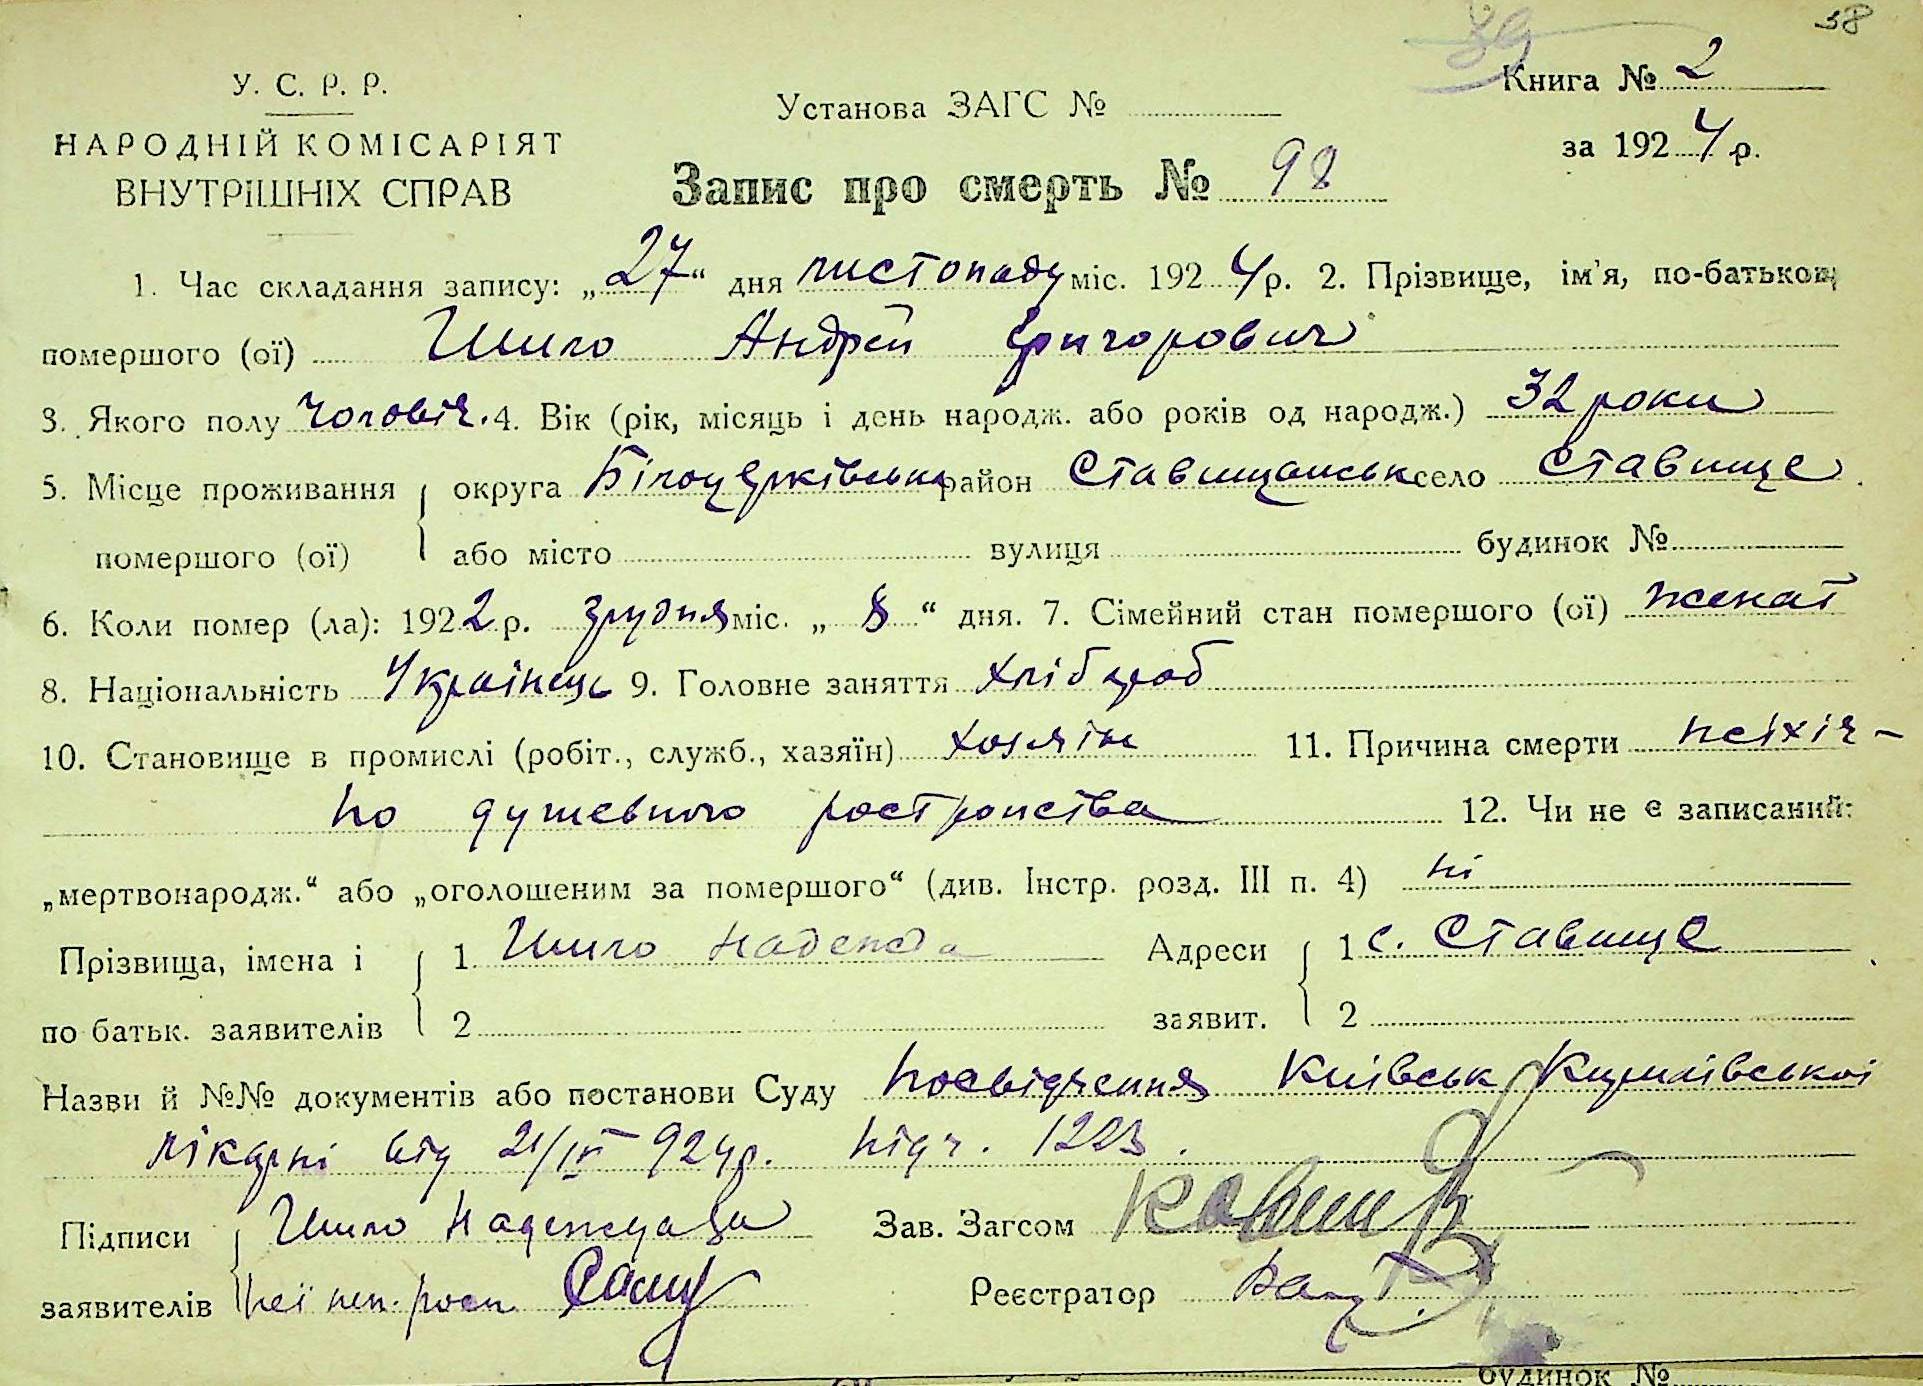 38
39
У. С. Р. Р.
НАРОДНІЙ КОМІСАРІЯТ
ВНУТРІШНІХ СПРАВ
Установа ЗАГС №
Книга № 2
за 1924 р.
Запис про смерть № 98
1. Час складання запису: „27“ дня листопаду міс. 1924 р. 2. Прізвище, ім'я, по-батькові
помершого (ої) Шило Андрей Григорович
3. Якого полу чоловіч. 4. Вік (рік, місяць і день народж. або років од народж.) 32 роки
5. Місце проживання округа Білоцерківська район Ставищанськ село Ставище
помершого (ої) або місто вулиця будинок №
6. Коли помер (ла): 1922 р. грудня міс. „8“ дня. 7. Сімейний стан помершого (ої) женат
8. Національність Українець 9. Головне заняття хлібороб
10. Становище в промислі (робіт., служб., хазяїн) хозяін 11. Причина смерти псіхіч-
но душевного ростройства 12. Чи не є записаний:
„мертвонародж.“ або „оголошеним за помершого“ (див. Інстр. розд. III п. 4) ні
Прізвища, імена і 1 Шило Надежда Адреси 1 с. Ставище
по батьк. заявителів 2 заявит. 2
Назви й №№ документів або постанови Суду Посвідчення Київськ Кирилівської
лікарні від 21/IV 924 р. під ч. 1223.
Підписи Шило Надежда за Зав. Загсом
заявителів неї неп. росп. Реєстратор
будинок №